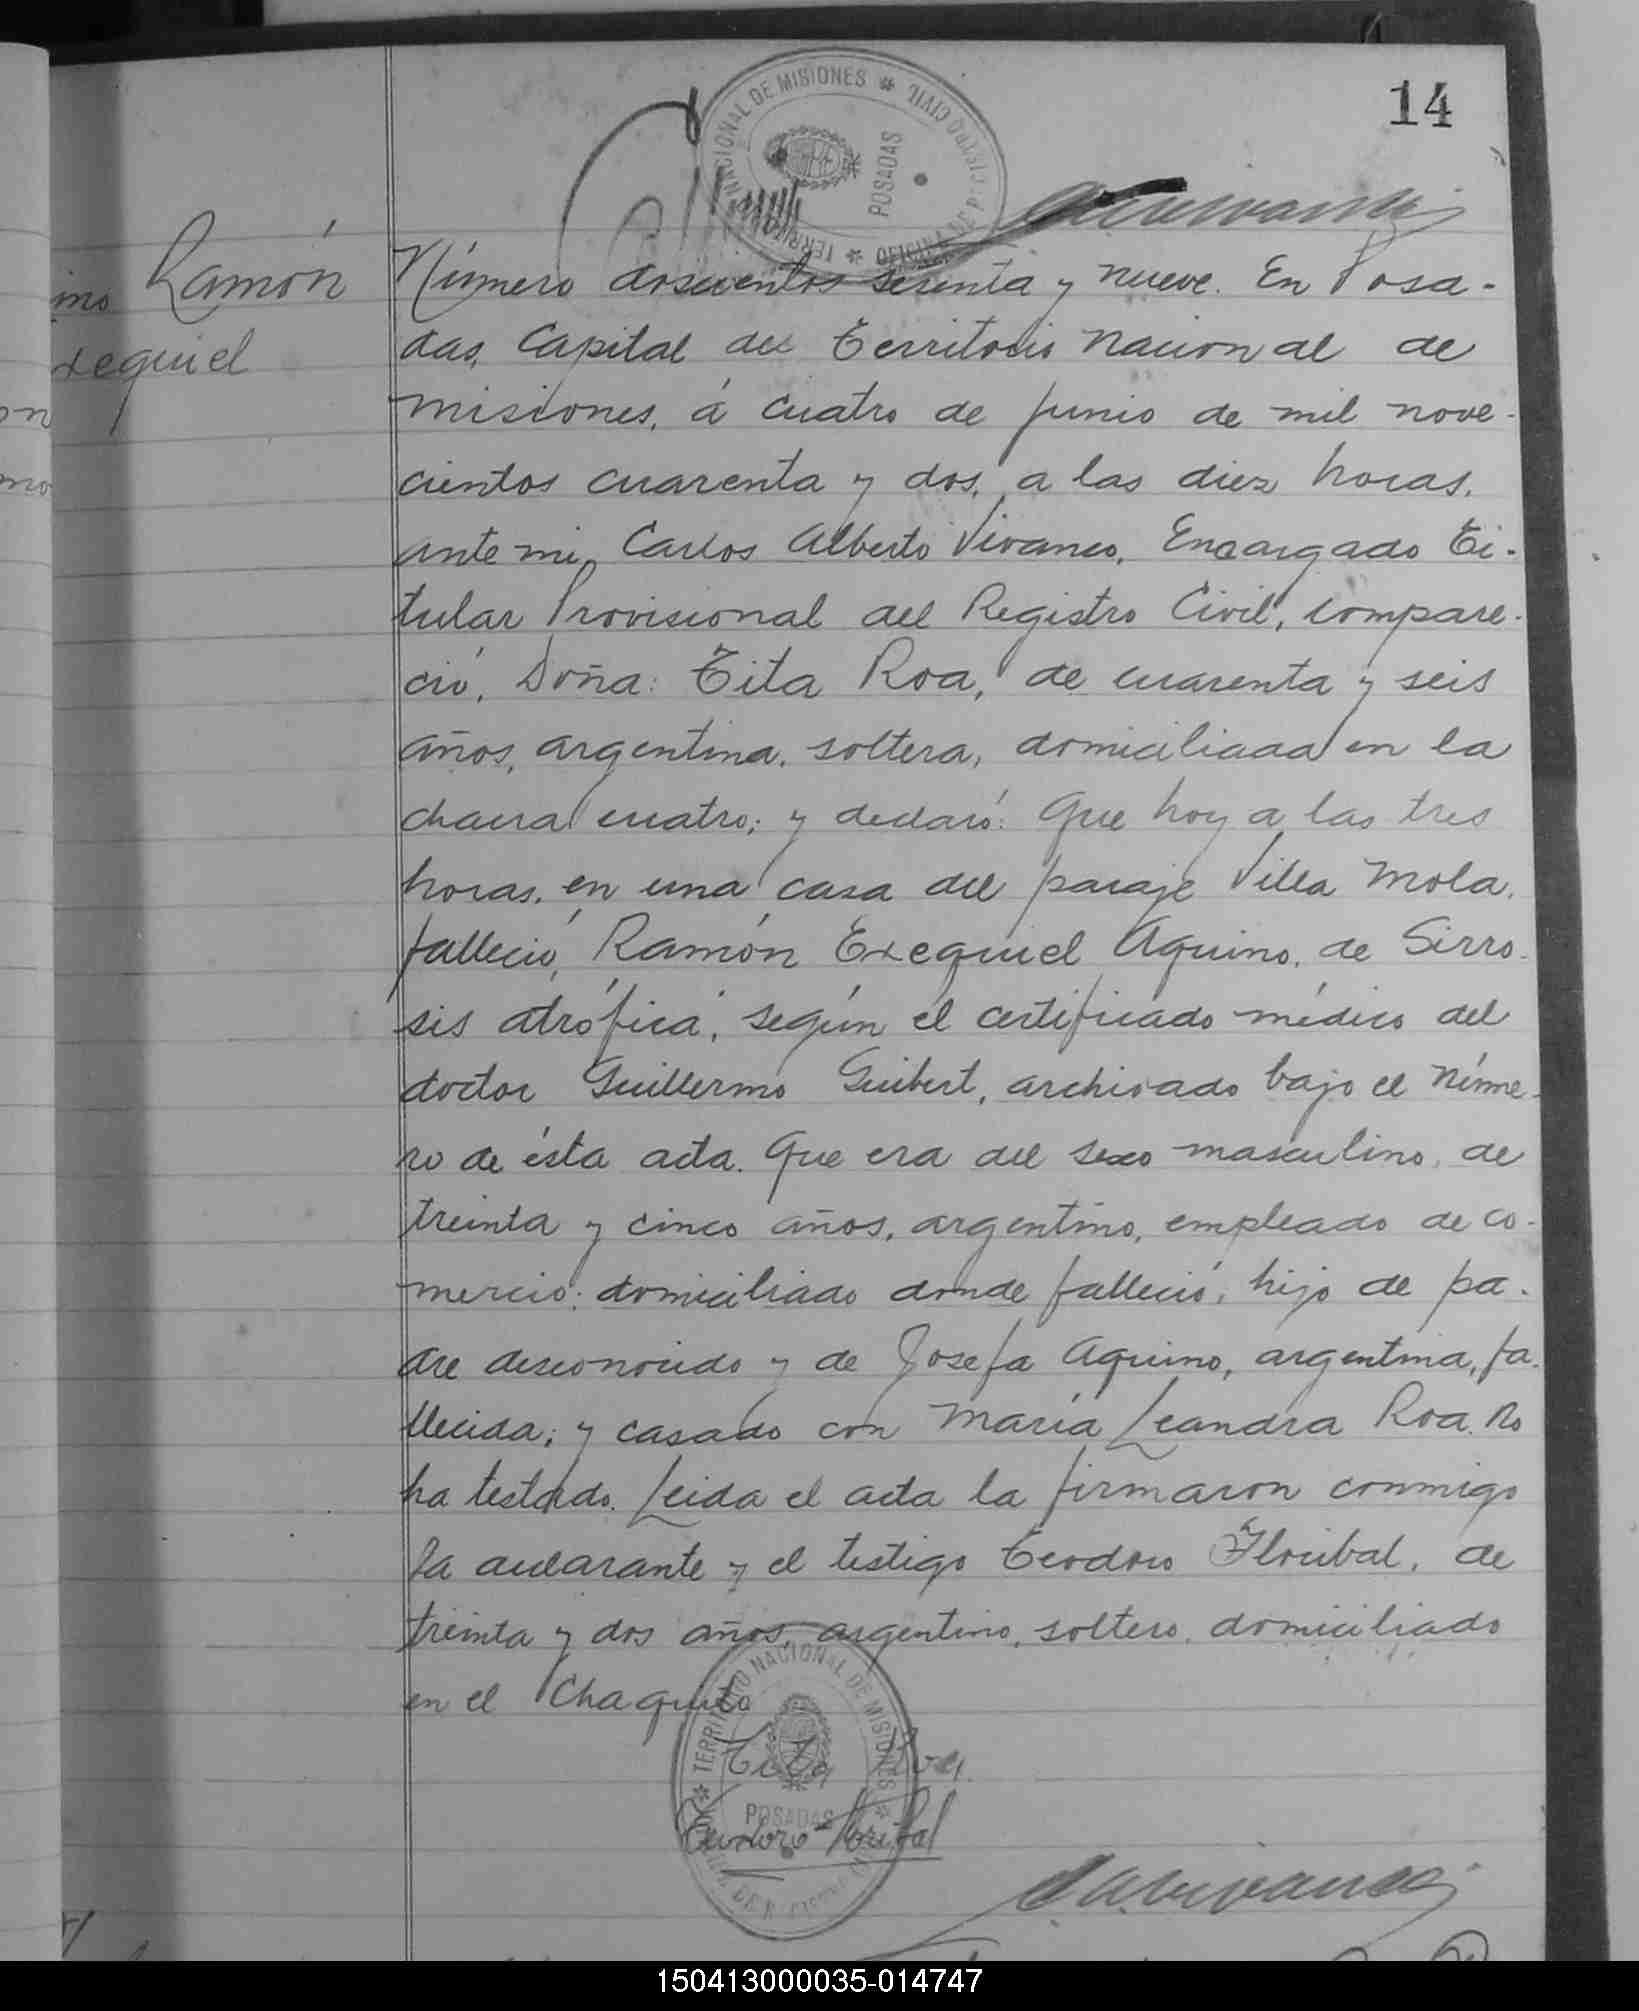 14
TERRITORIO NACIONAL DE MISIONES
POSADAS
Ramón
Exequiel
Número doscientos sesenta y nueve. En Posa-
das, Capital del Territorio Nacional de
Misiones, á cuatro de Junio de mil nove-
cientos cuarenta y dos, a las diez horas,
ante mi, Carlos Alberto Vivanco, Encargado Ti-
tular Provisional del Registro Civil, compare-
ció, Doña: Tita Roa, de cuarenta y seis
años, argentina, soltera, domiciliada en la
chacra cuatro; y declaró: Que hoy a las tres
horas, en una casa del paraje Villa Mola,
falleció, Ramón Exequiel Aquino, de Sirro-
sis atrófica, según el certificado médico del
doctor Guillermo Guibert, archivado bajo el núme-
ro de ésta acta. Que era del sexo masculino, de
treinta y cinco años, argentino, empleado de co-
mercio: domiciliado donde falleció, hijo de pa-
dre desconocido y de Josefa Aquino, argentina, fa-
llecida; y casado con María Leandra Roa. No
ha testado. Leida el acta la firmaron conmigo
la declarante y el testigo Teodoro Floribal, de
treinta y dos años, argentino, soltero, domiciliado
en el Chaquito
TERRITORIO NACIONAL DE MISIONES
POSADAS
Tita Roa
Teodoro Floribal
150413000035-014747